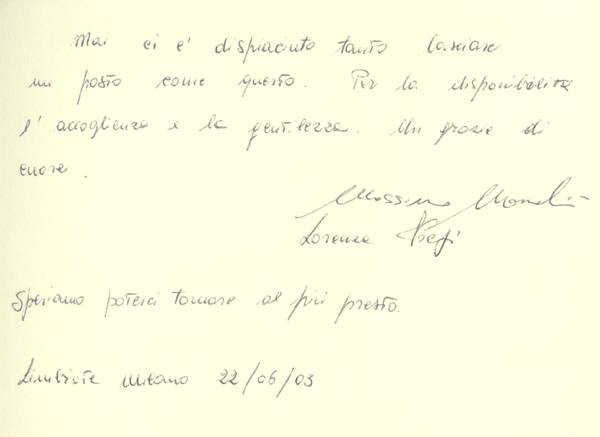 Mai ci è dispiaciuto tanto lasciare
un posto come questo. Per la disponibilità
l'accoglienza e la gentilezza. Un grazie di
cuore.
Massimo
Lorenza
Speriamo poterci tornare al più presto.
Limbiate Milano 22/06/03